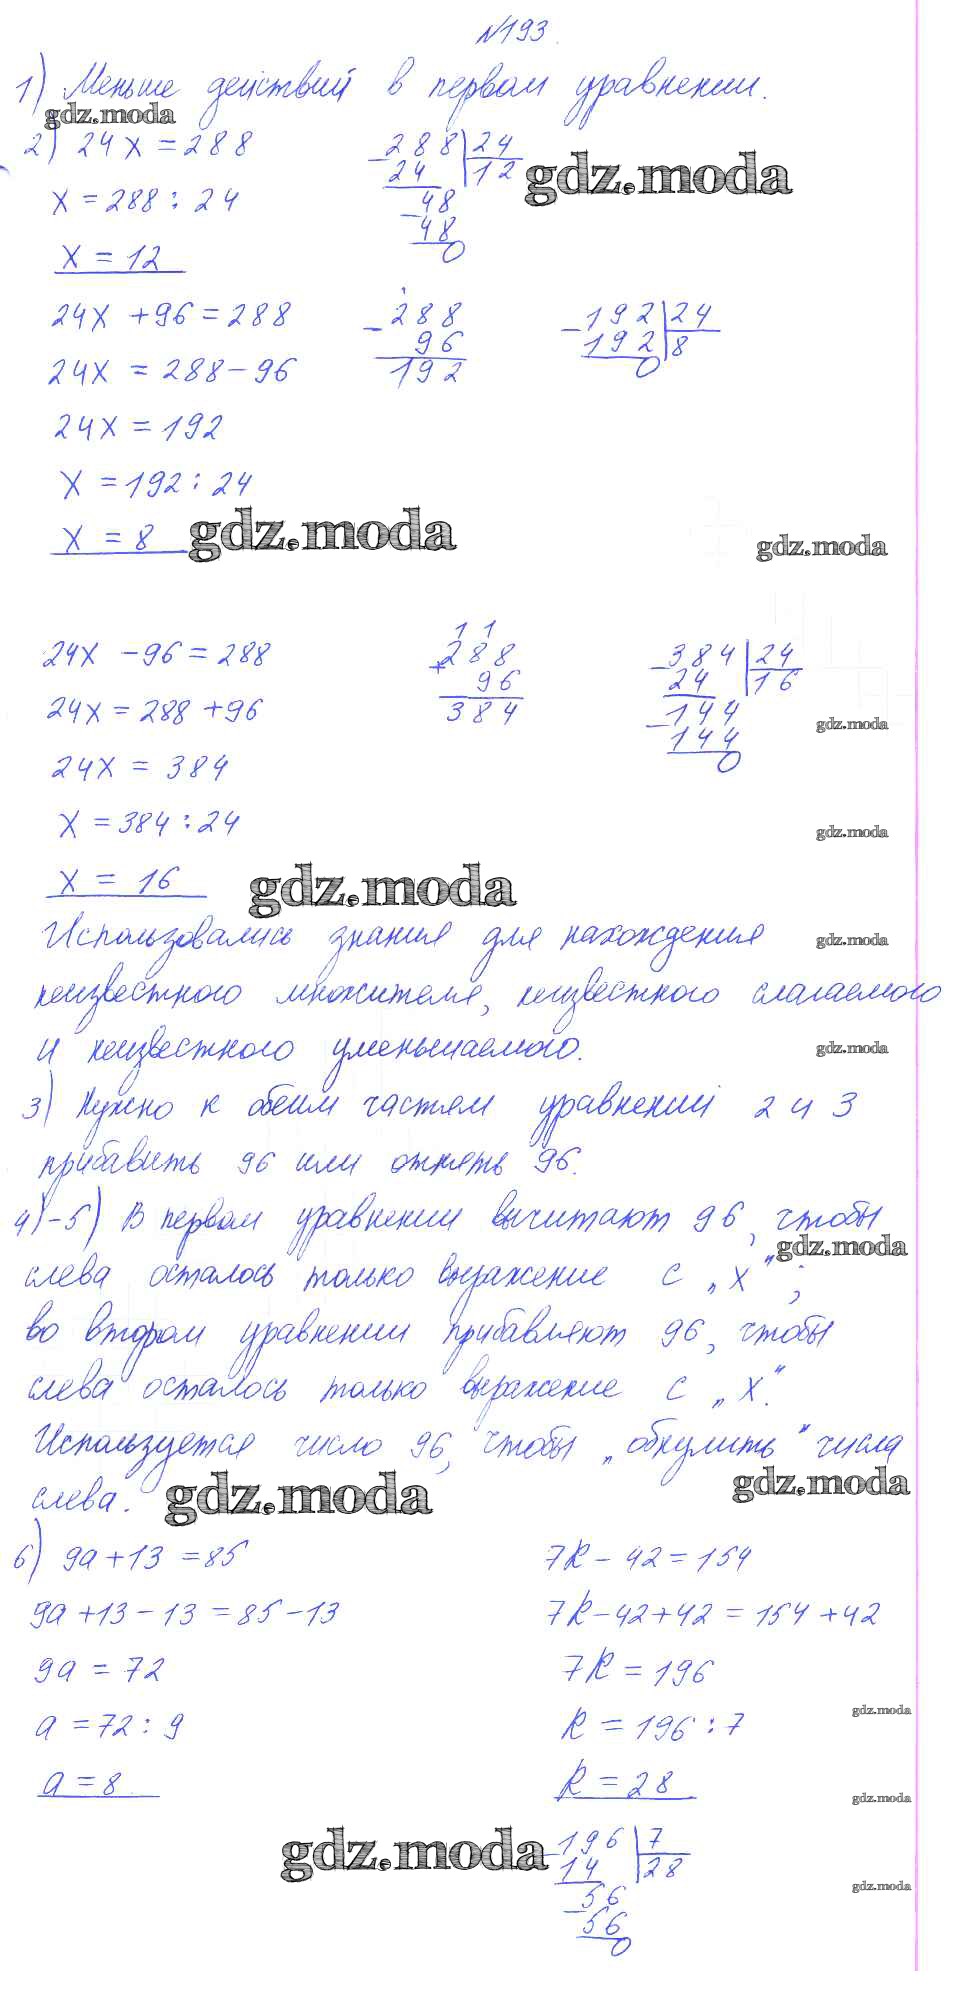 №193.
1) Меньше действий в первом уравнении.
gdz.moda
2) 24x = 288
288 24
24 12
gdz.moda
x = 288 : 24
48
48
0
x = 12
24x + 96 = 288
288
96
192
192 24
192 8
0
24x = 288 - 96
24x = 192
x = 192 : 24
x = 8
gdz.moda
gdz.moda
24x - 96 = 288
1 1
+288
96
384
384 24
24 16
144
144
0
24x = 288 + 96
gdz.moda
24x = 384
x = 384 : 24
gdz.moda
x = 16
gdz.moda
Использовались знания для нахождения
gdz.moda
неизвестного множителя, неизвестного слагаемого
и неизвестного уменьшаемого.
gdz.moda
3) Нужно к обеим частям уравнений 2 и 3
прибавить 96 или отнять 96.
4)-5) В первом уравнении вычитают 96, чтобы
gdz.moda
слева осталось только выражение с „x”;
во втором уравнении прибавляют 96, чтобы
слева осталось только выражение с „x”.
Используется число 96, чтобы „обнулить” числа
слева.
gdz.moda
gdz.moda
6) 9a + 13 = 85
7k - 42 = 154
9a + 13 - 13 = 85 - 13
7k - 42 + 42 = 154 + 42
9a = 72
7k = 196
a = 72 : 9
k = 196 : 7
gdz.moda
a = 8
k = 28
gdz.moda
gdz.moda
196 7
14 28
56
56
0
gdz.moda